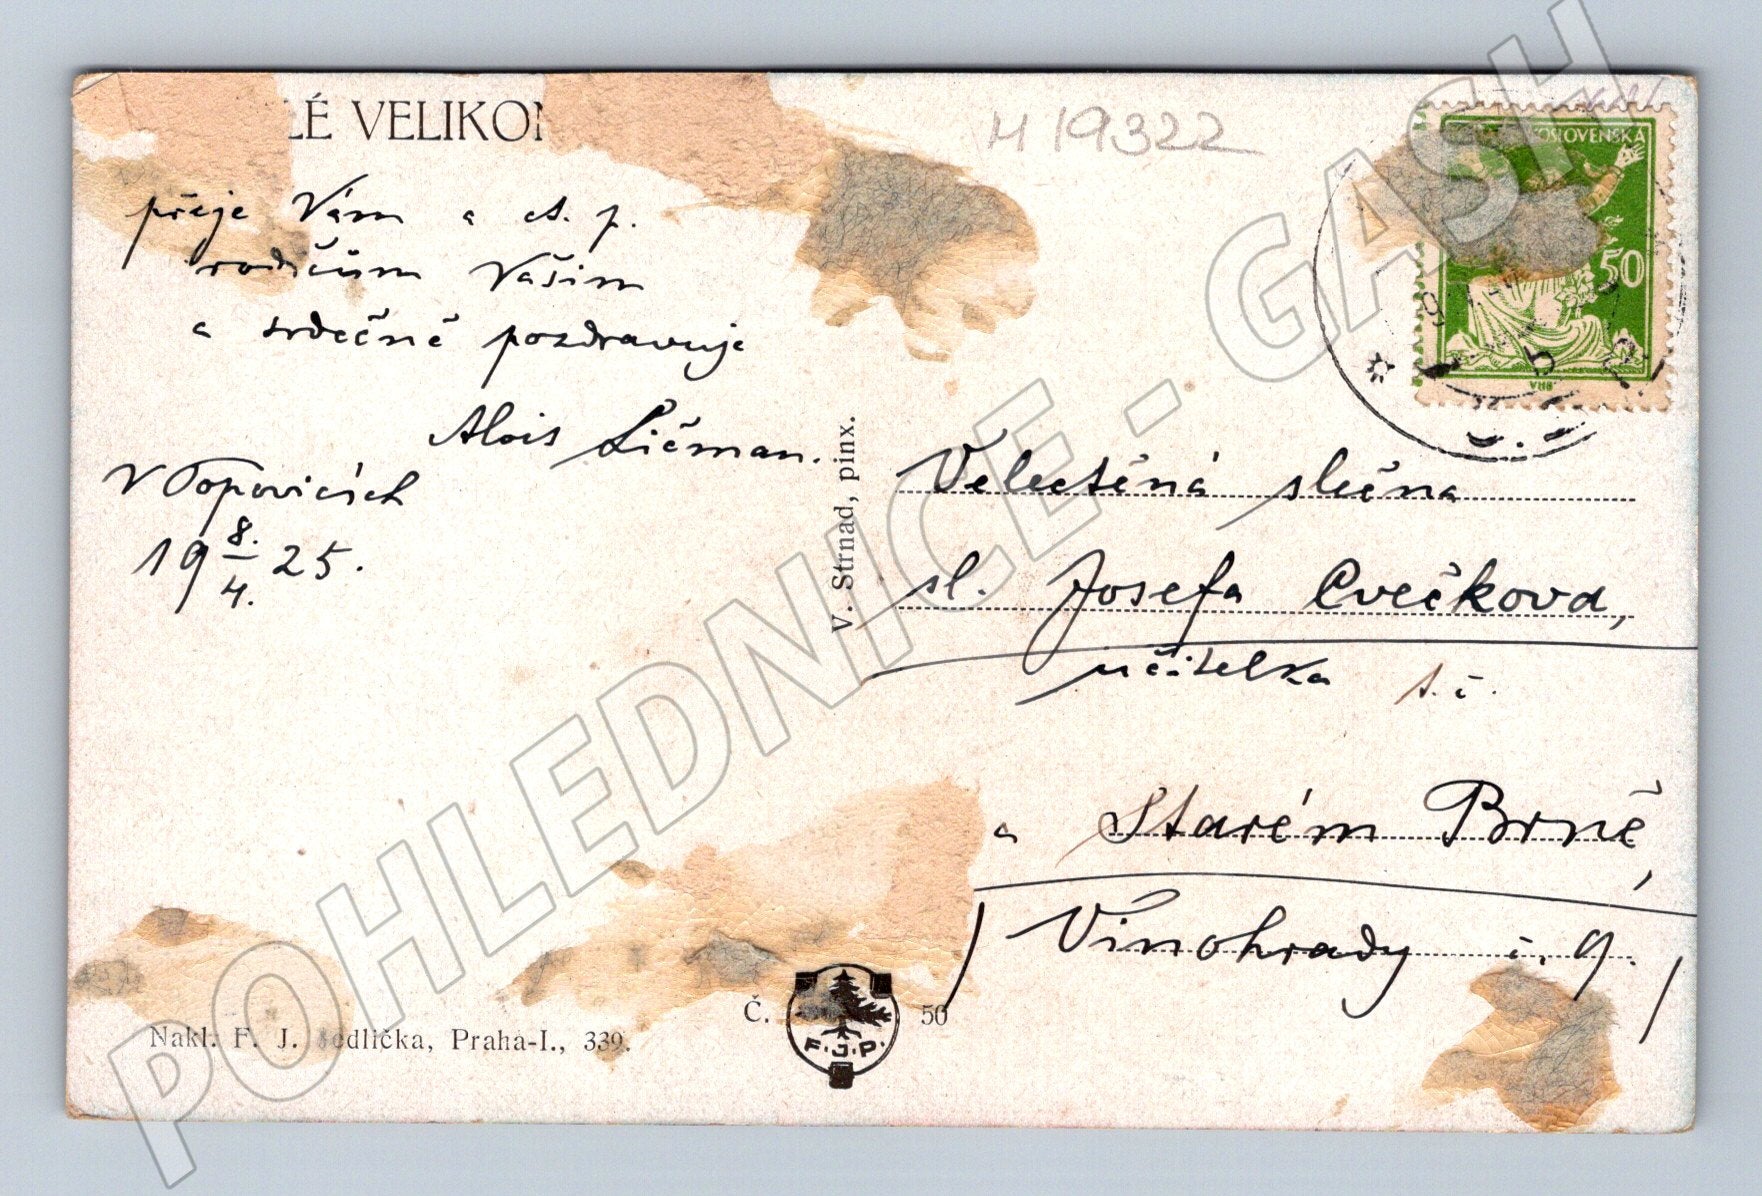 LÉ VELIKON
přeje Vám a ct. p.
rodičům Vašim
a srdečně pozdravuje
Alois Ličman.
V Popovicích
19 8./4. 25.
M 19322
V. Strnad, pinx.
KOSLOVENSKÁ
50
BRA
Velectěná slečna
sl. Josefa Cvečkova,
učitelka
a Starém Brně,
Vinohrady č. 9.
Nakl. F. J. Jedlička, Praha-I., 339.
Č. 50
F. J. P.
POHLEDNICE - GASH